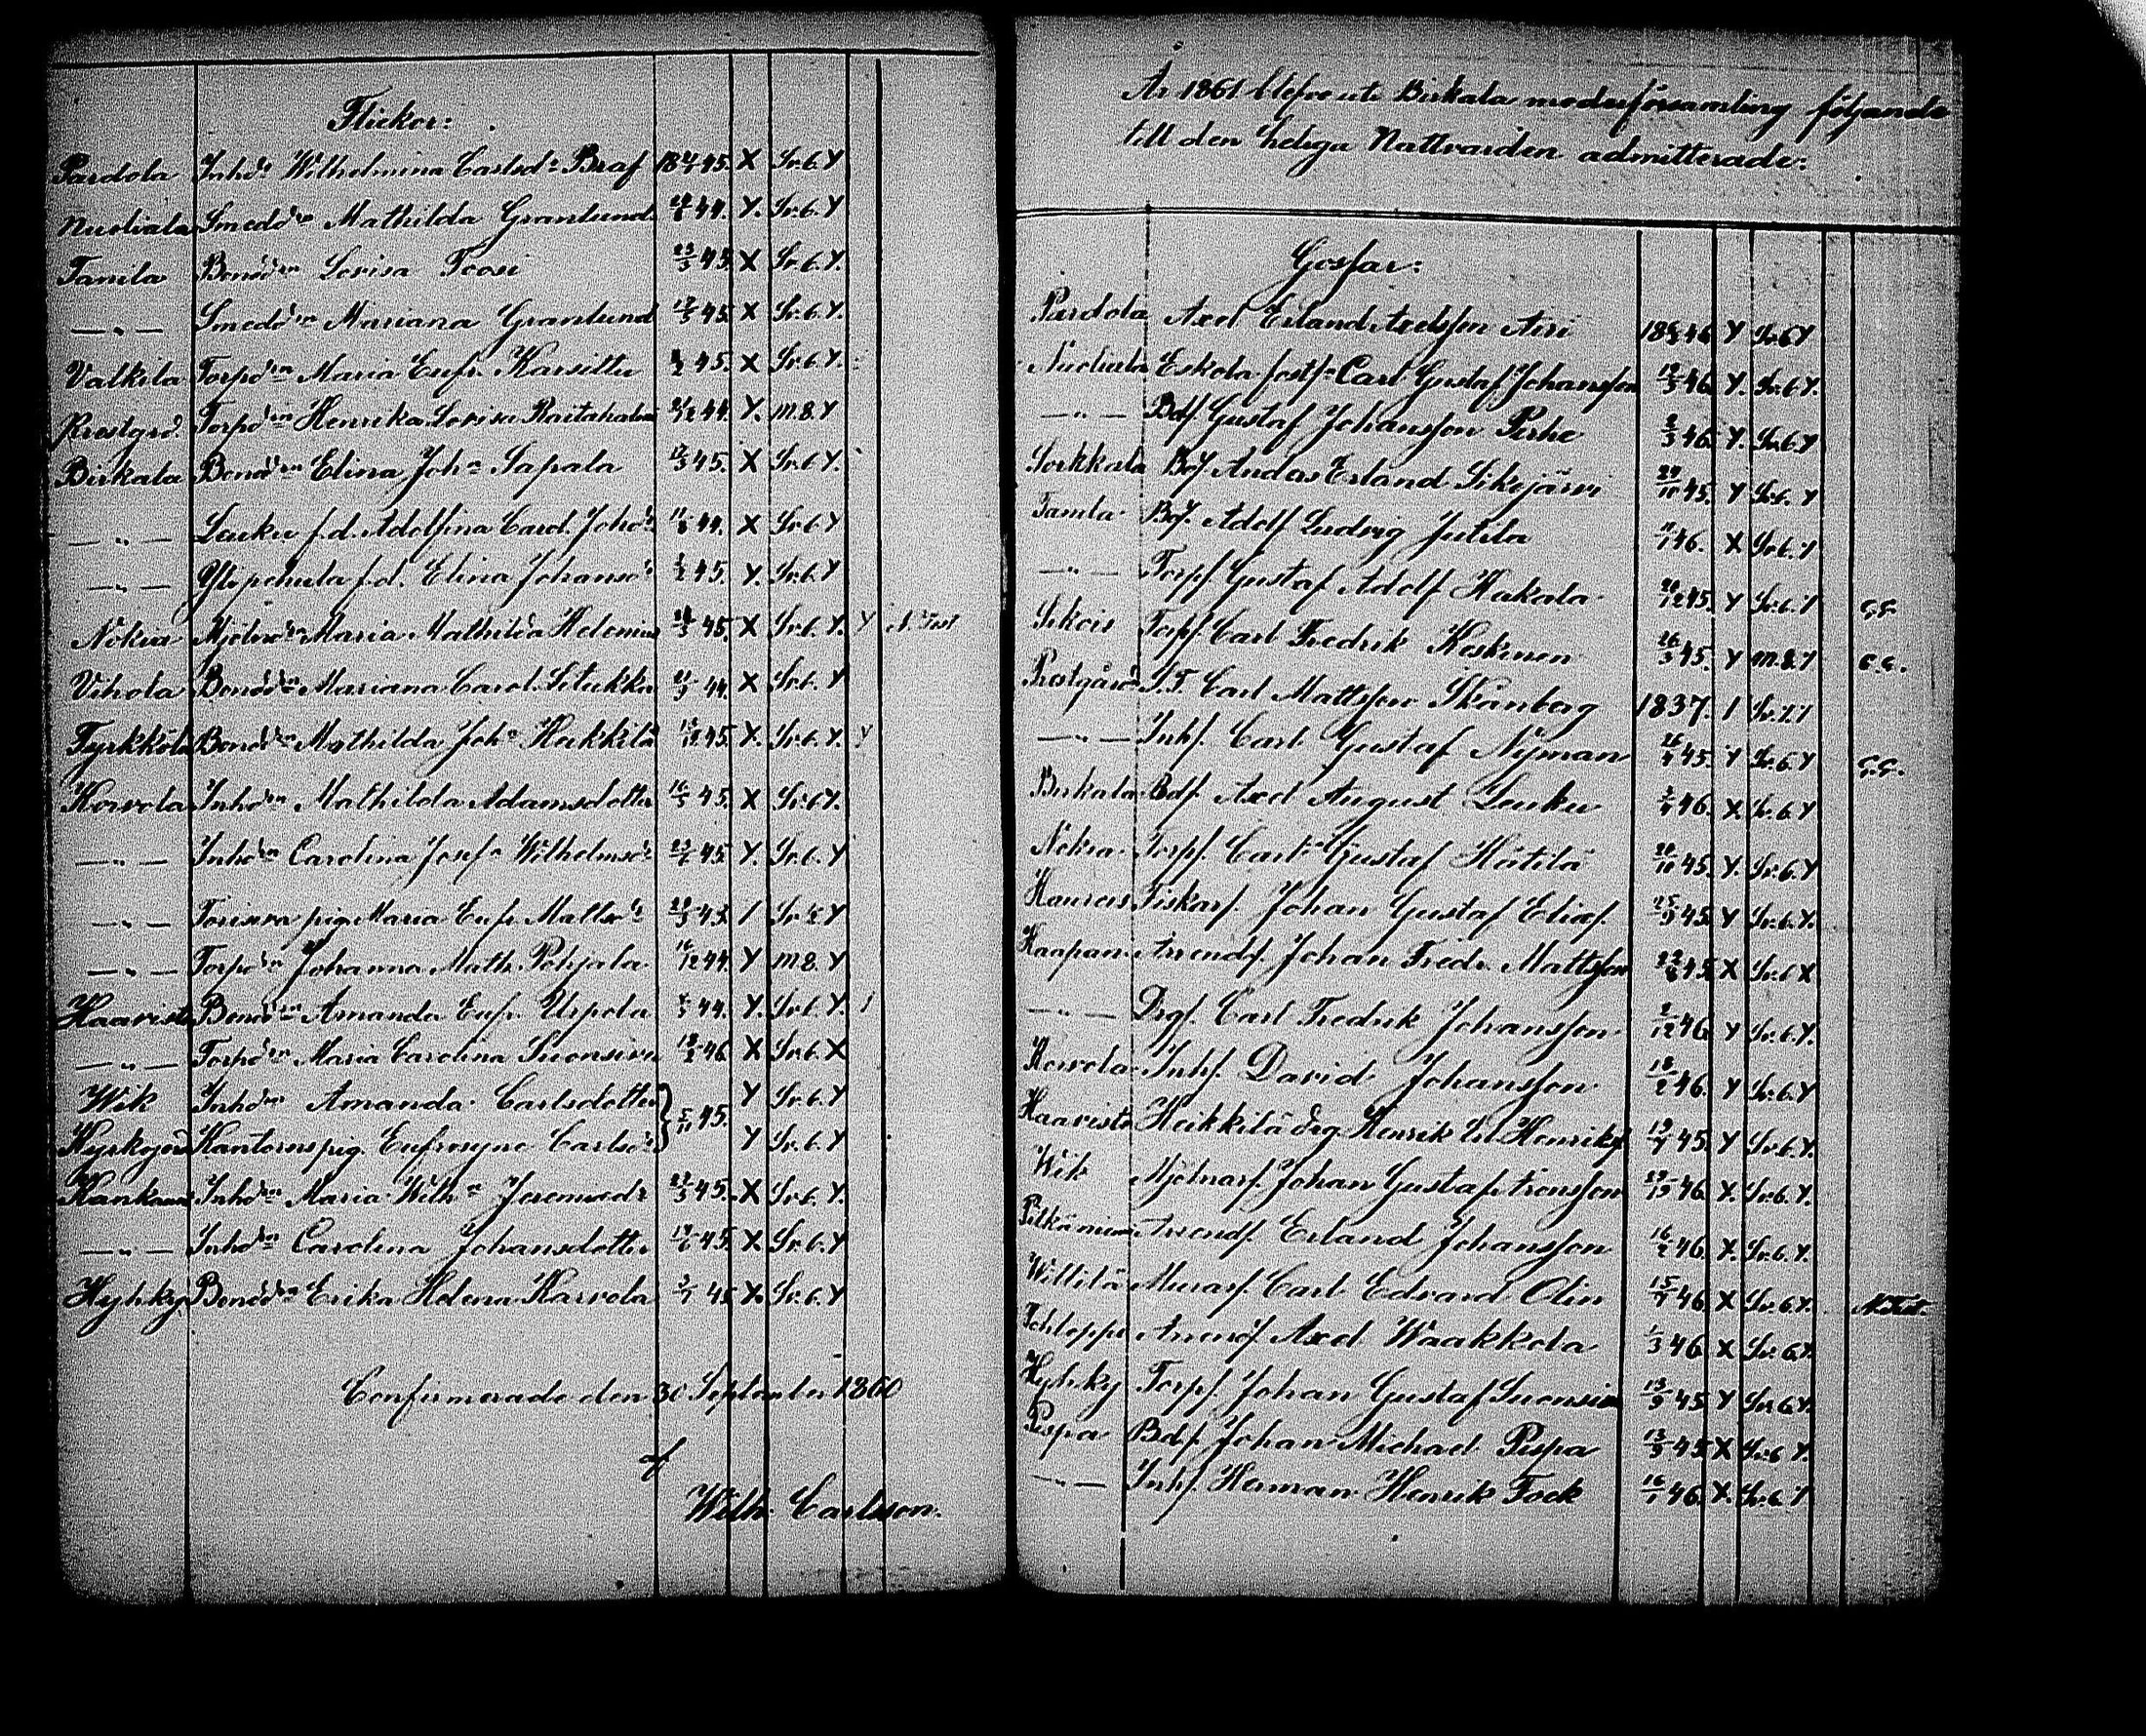 Flickor:
Pardola Inhd:r Wilhelmina Carlsd:r Braf 18 45. X Sv. 6. Y
Nuoliala Smedd:rn Mathilda Granlund 44. Y. Sv. 6. Y
Tamila Bondd:rn Lovisa Toosi 23/3 45. X Sv. 6. Y.
— „ — Smedd:rn Mariana Granlund 45. X Sv. 6. Y.
Valkila Torpd:rn Maria Eufr. Karsittu 45. X Sv. 6. Y
Prestgrd. Torpd:rn Henrika Lovisa 44. Y. M. 8. Y
Birkala Bondd:rn Elina Joh:a Sapala 45. X Sv. 6. Y.
— „ — Leuku f.d. Adolfina Carol. Johd:r 44. X Sv. 6. Y
— „ — Ylipehula f.d. Elina Johansd:r 45. Y. Sv. 6. Y
Nokia Mjölnd:rn Maria Mathilda Helenius 45. X Sv. 6. Y. Y N. Test
Vihola Bondd:rn Mariana Carol. 44. X Sv. 6. Y
Tyrkkölä Bondd:rn Mathilda Joh:a Heikkilä 45. X. Sv. 6. Y. Y
Korvola Inhd:rn Mathilda Adamsdotter 16/5 45. X Sv. 6. Y.
— „ — Inhd:rn Carolina Josef:a Wilhelmsd:r 45. Y. Sv. 6. Y
— „ — pig. Maria Eufr. Mattsd:r 43. / Sv. 2. Y
— „ — Torpd:rn Johanna Math. Pohjala 16/12 44. Y M. 8. Y
Haavisto Bondd:rn Amanda Eufr. Uspola 44. Y. Sv. 6. Y. /
— „ — Torpd:rn Maria Carolina Suonsivu 18/2 46. X Sv. 6. X
Wik Inhd:rn Amanda Carlsdotter } 5/11 45. Y Sv. 6. Y
Kyrkogrd Kantorns pig. Eufrosyne Carlsd:r Y Sv. 6. Y
Kankaan Inhd:rn Maria Wilh:a Jeremiasd:r 45. X Sv. 6. Y.
— „ — Inhd:rn Carolina Johansdotter 45. X. Sv. 6. Y
Hyhky Bondd:rn Erika Helena Karvola 45 X. Sv. 6. Y
Confirmerade den 30 September 1860
af
Wilh. Carlsson.
År 1861 blefvo uti Birkala moderförsamling följande
till den heliga Nattvarden admitterade:
Gossar:
Pardola Axel Erland Axelsson Airi 18 46 Y Sv. 6 Y
Nuoliala Eskola fostf:r Carl Gustaf Johansson 19/3 46. Y. Sv. 6 Y.
— „ — Bdf. Gustaf Johansson Perhe 2/3 46. Y. Sv. 6. Y
Sorkkala Bdf. Andas Erland Sikojärvi 45. Y Sv. 6. Y
Tamla Bdf. Adolf Ludvig Jutila 46. X Sv. 6. Y
— „ — Torpf. Gustaf Adolf Hakala 20/12 45. Y Sv. 6. Y G.G.
Sikois Torpf. Carl Fredrik Keskinen 26/3 45. Y M. 8. Y G.G.
Prestgård S.T. Carl Mattsson Skanberg 1837. / Sv. 2. Y
— „ — Inhf. Carl Gustaf Nyman 45. Y Sv. 6. Y G.G.
Birkala Bdf. Axel August Leuku 46. X. Sv. 6. Y
Nokia Torpf. Carl Gustaf Hätilä 28/10 45. Y. Sv. 6. Y
Haurois Fiskarf. Johan Gustaf Eliaf. 25/9 45. Y Sv. 6. Y.
Haapan. Arrendf. Johan Fredr. Mattsson 22/8 45 X Sv. 6 X
— „ — Drgf. Carl Fredrik Johansson 2/12 46. Y Sv. 6. Y.
Korvola Inhf. David Johansson 18/2 46. Y Sv. 6. Y
Haavisto Heikkilä drg. Henrik Henriksf. 45. Y Sv. 6. Y.
Wik Mjölnarf. Johan Gustaf 46. Y. Sv. 6. Y.
Pitkäniemi Arrendf. Erland Johansson 16/2 46. Y. Sv. 6. Y.
Willilä Murarf. Carl Edvard Olin 46. X Sv. 6. Y. N. Test.
Tohloppi Arrendf. Axel Waakkola 1/3 46. X Sv. 6. Y.
Hyhky Torpf. Johan Gustaf Suonsivu 13/9 45. Y Sv. 6. Y.
Pispa Bdf. Johan Michael Pispa 13/9 45 X Sv. 6 Y.
— „ — Inhf. Herman Henrik Fock 16/1 46. X. Sv. 6. Y